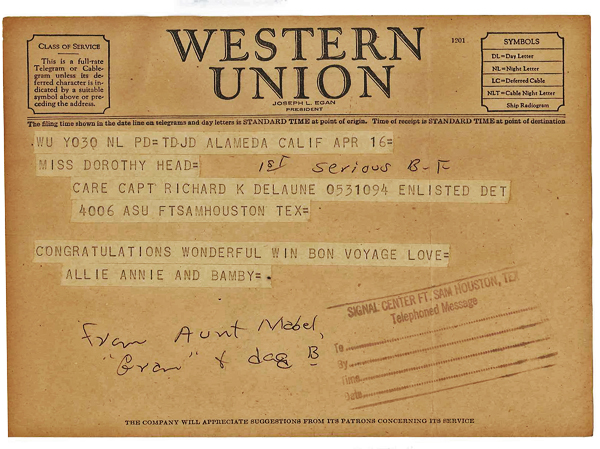 CLASS OF SERVICE
This is a full-rate
Telegram or Cable-
gram unless its de-
ferred character is in-
dicated by a suitable
symbol above or pre-
ceding the address.
WESTERN
UNION
JOSEPH L. EGAN
PRESIDENT
1201
SYMBOLS
DL=Day Letter
NL=Night Letter
LC=Deferred Cable
NLT=Cable Night Letter
Ship Radiogram
The filing time shown in the date line on telegrams and day letters is STANDARD TIME at point of origin. Time of receipt is STANDARD TIME at point of destination
WU Y030 NL PD=TDJD ALAMEDA CALIF APR 16=
MISS DOROTHY HEAD=
1st serious B-F
CARE CAPT RICHARD K DELAUNE 0531094 ENLISTED DET
4006 ASU FTSAMHOUSTON TEX=
CONGRATULATIONS WONDERFUL WIN BON VOYAGE LOVE=
ALLIE ANNIE AND BAMBY=
SIGNAL CENTER FT. SAM HOUSTON, TEX
Telephoned Message
To
By
Time
Date
From Aunt Mabel,
"Gran" & dog B
THE COMPANY WILL APPRECIATE SUGGESTIONS FROM ITS PATRONS CONCERNING ITS SERVICE